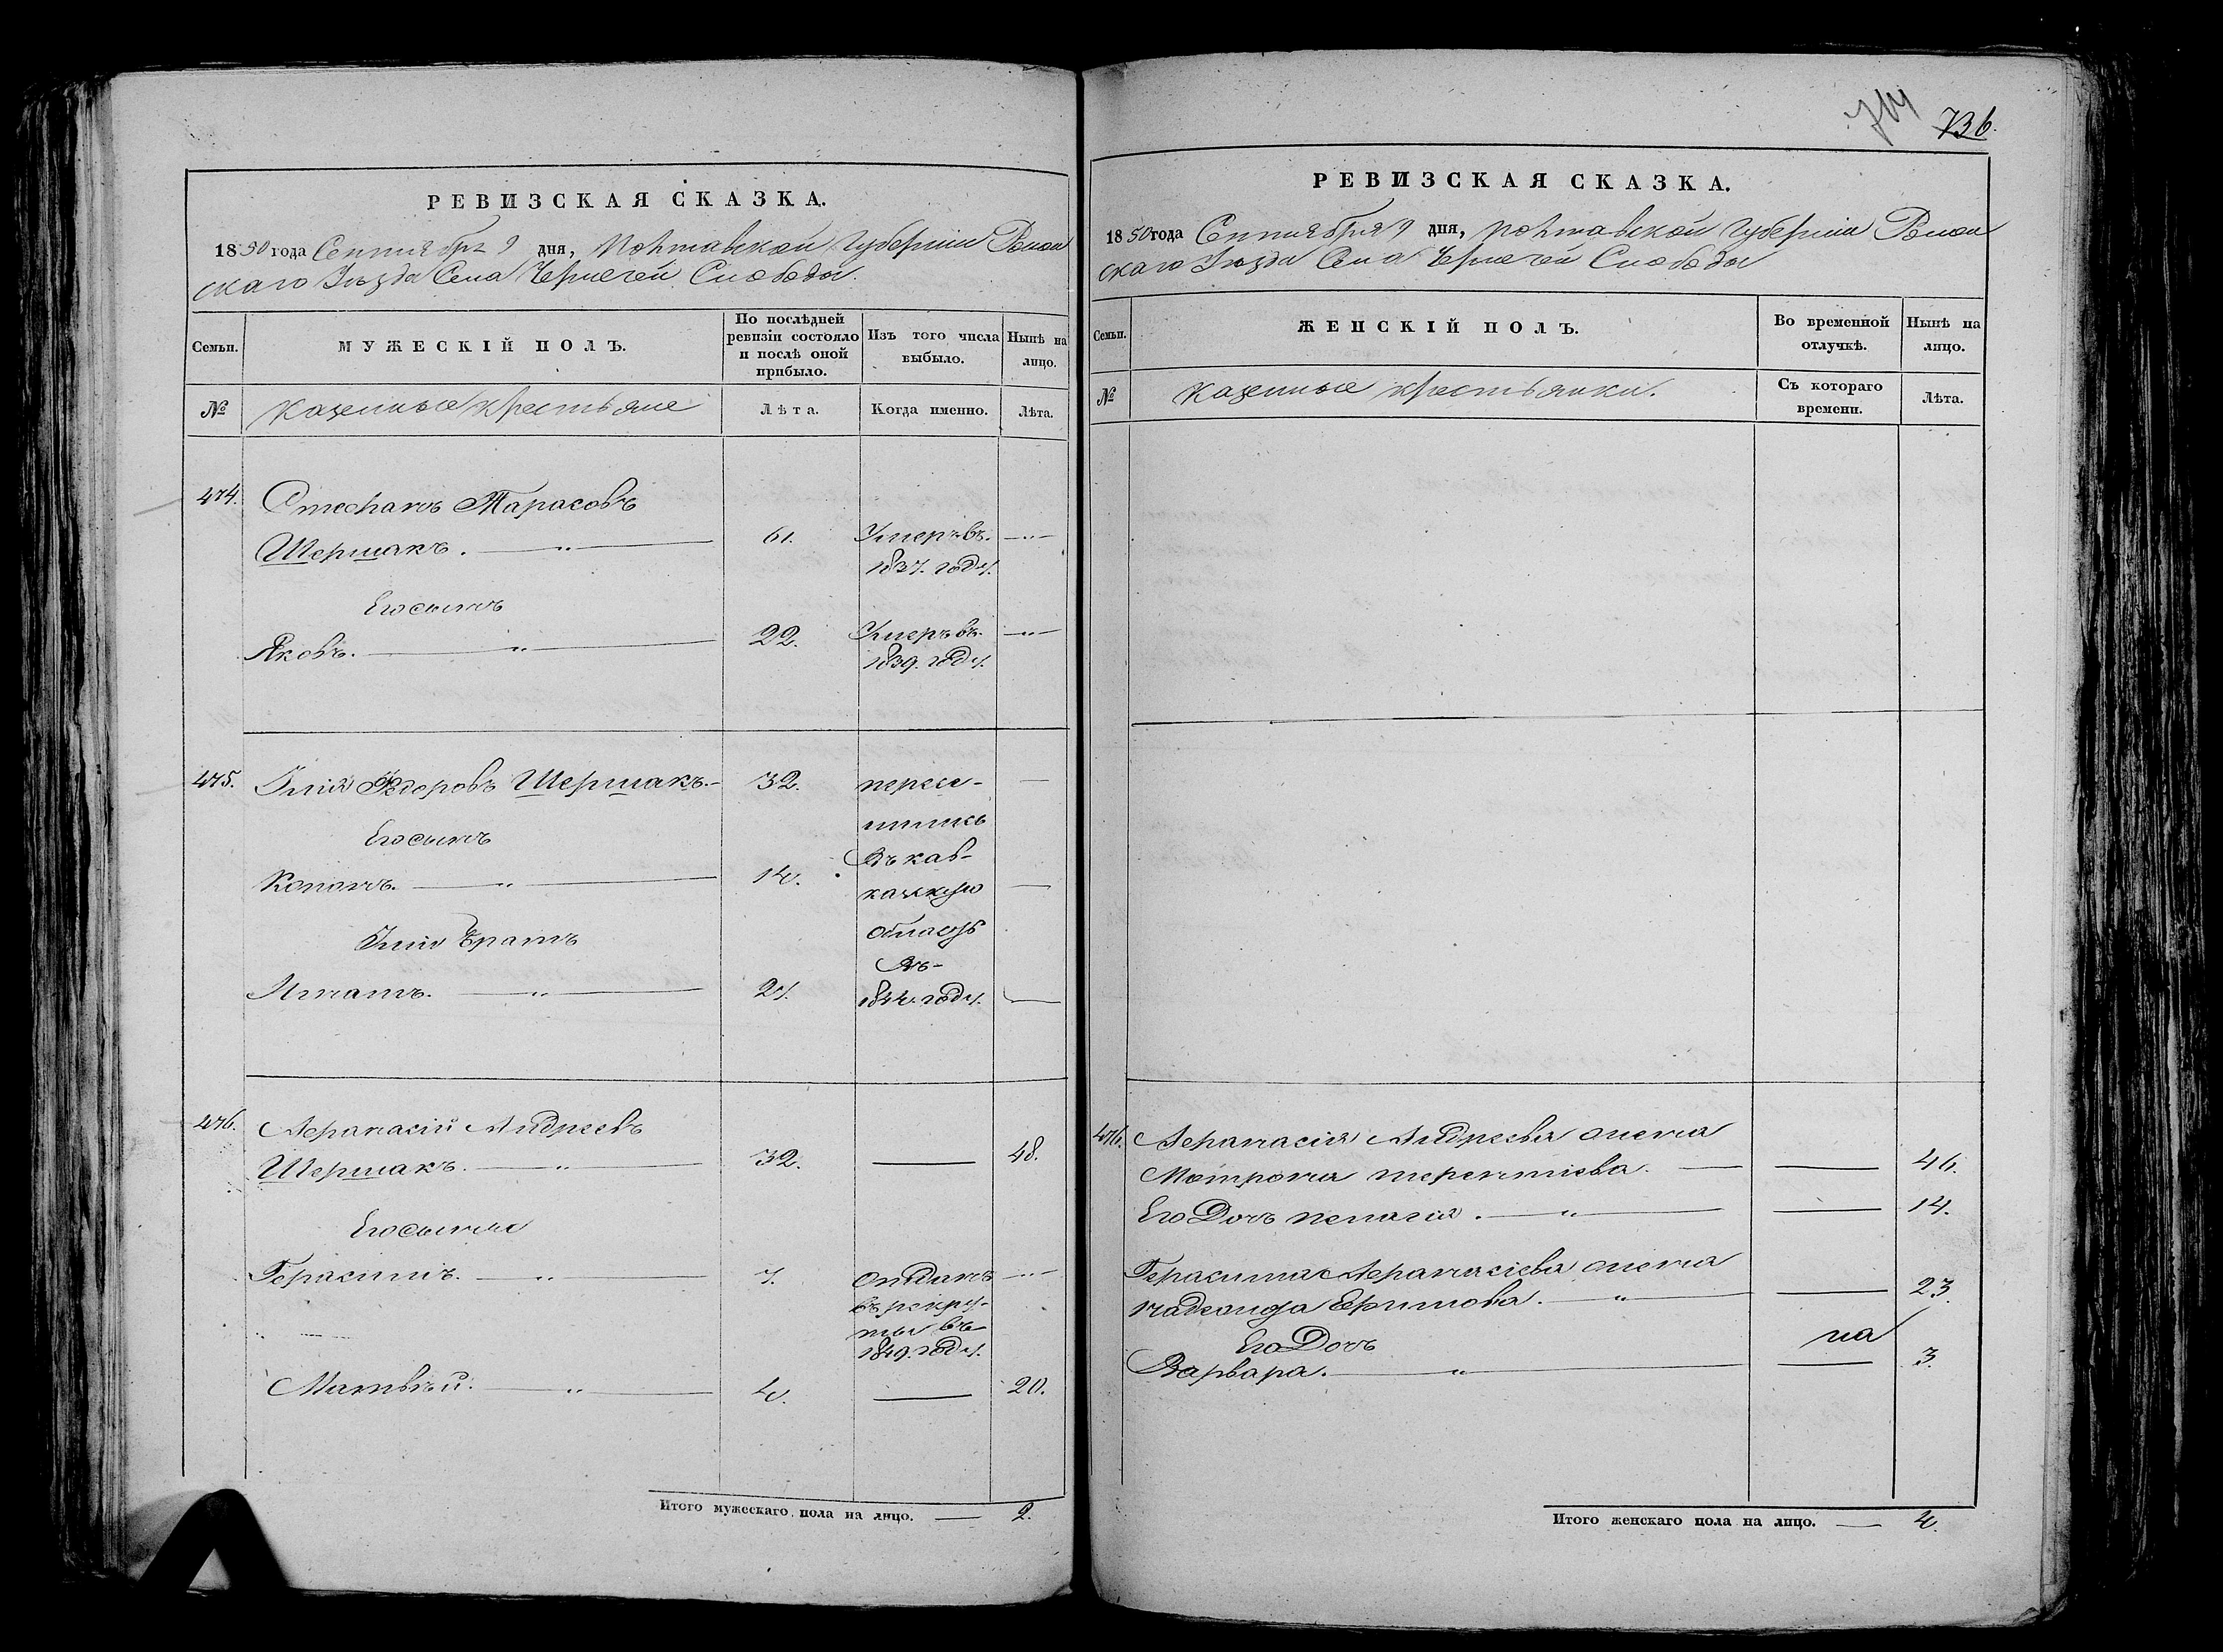 РЕВИЗСКАЯ СКАЗКА.
1850 года Сентября 9 дня, Полтавской Губерніи Ромен
скаго Уѣзда Села Чернечей Слободы.
Семьи.
МУЖЕСКІЙ ПОЛЪ.
По послѣдней
ревизіи состояло
и послѣ оной
прибыло.
Изъ того числа
выбыло.
Нынѣ на
лицо.
№
Казенные крестьяне
Лѣта.
Когда именно.
Лѣта.
474. Стефанъ Тарасовъ
Шершакъ. 61. Умеръ въ
1837. году.
Его сынъ
Яковъ. 22. Умеръ въ
1839. году.
475. Илія Федоровъ Шершакъ. 32. пересе-
лились
Его сынъ
Въ кав-
Кононъ. 14. казскую
Иліи братъ
область
Въ-
Игнатъ. 27. 1844. году.
476. Афанасій Андреевъ
Шершакъ. 32. 48.
Его сынъя
Герасимъ. 7. отданъ
въ рекру-
ты въ
1849. году.
Матвѣй. 4. 20.
Итого мужескаго пола на лицо. 2.
714
736.
РЕВИЗСКАЯ СКАЗКА.
1850 года Сентября 9 дня, Полтавской Губерніи Ромен
скаго Уѣзда Села Чернечей Слободы
Семьи.
ЖЕНСКІЙ ПОЛЪ.
Во временной
отлучкѣ.
Нынѣ на
лицо.
№
Казенные крестьянки.
Съ котораго
времени.
Лѣта.
476. Афанасія Андреева жена
Мотрона терентіева. 46.
Его Дочь пелагія. 14.
Герасима Афанасіева жена
надежда Ефимова. 23.
Его Дочь на
Варвара. 3.
Итого женскаго пола на лицо. 4.